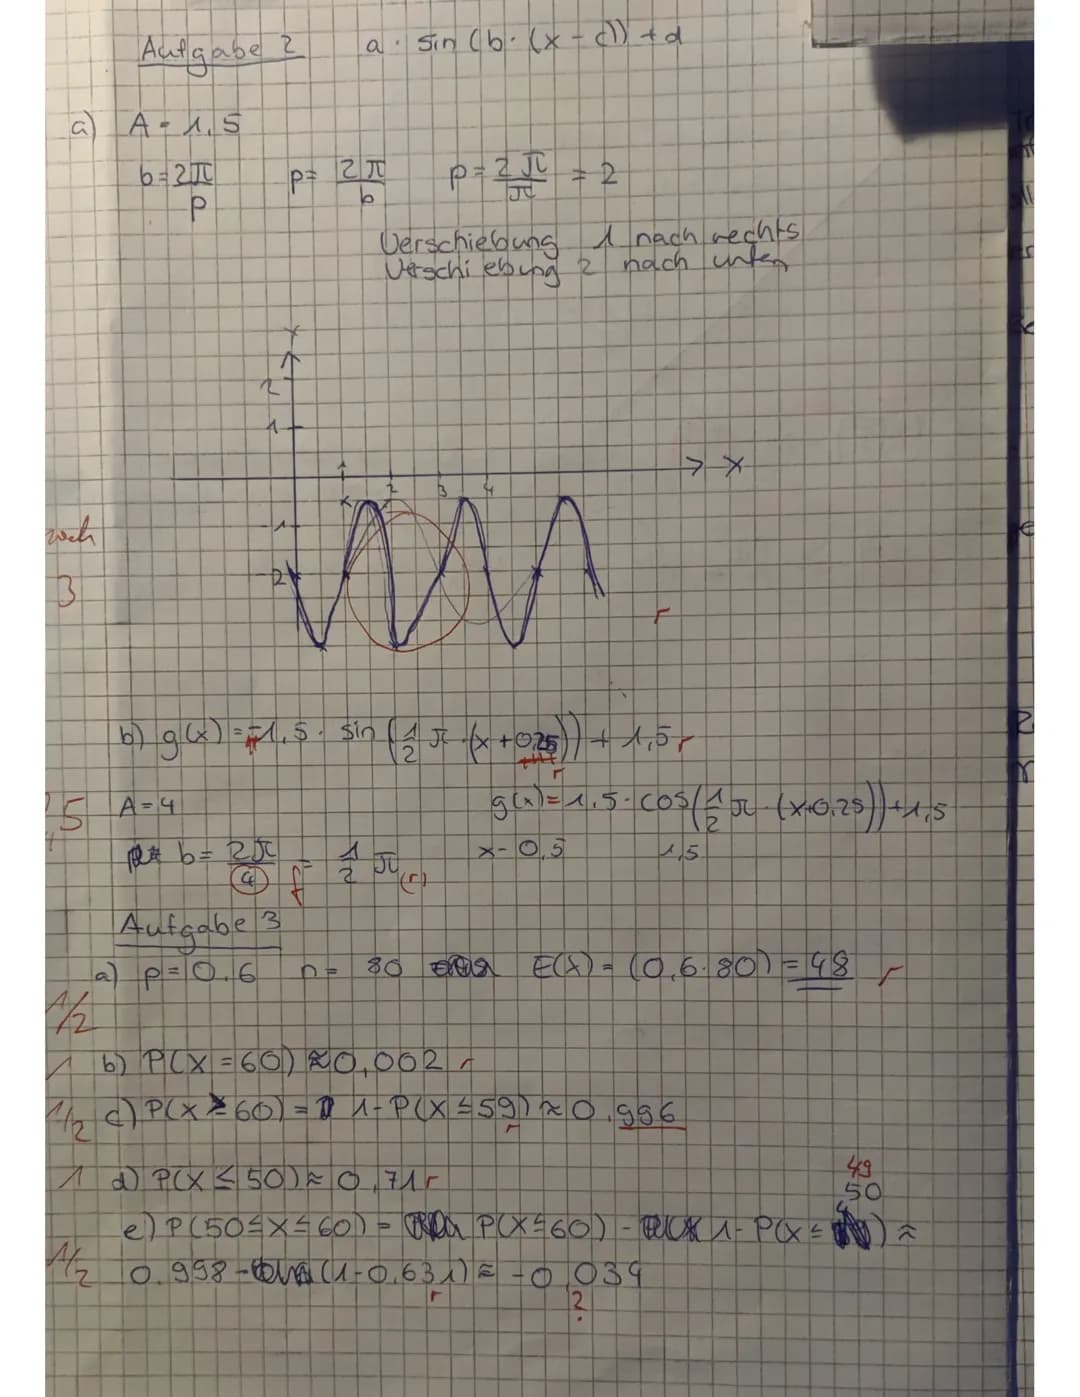 Aufgabe 2 a · sin(b · (x - c)) + d
a) A = 1,5
b = 2π/p p = 2π/b p = 2π/π = 2
Verschiebung 1 nach rechts
Verschiebung 2 nach unten
Y
2
1
1 2 3 4 x
-1
-2
3
r
b) g(x) = -1,5 · sin(1/2 π · (x + 0,25)) + 1,5 r
r
A = 4 g(x) = 1,5 · cos(1/2 π · (x+0,25)) + 1,5
b = 2π/4 f = 1/2 π (r) x - 0,5 1,5
Aufgabe 3
a) p = 0.6 n = 80 E(X) = (0,6·80) = 48 r
1/2
1 b) P(X = 60) ≈ 0,002 r
1/2 c) P(X ≥ 60) = 1 - P(X ≤ 59) ≈ 0.996
r
1 d) P(X ≤ 50) ≈ 0,71 r
49
50
e) P(50 ≤ X ≤ 60) = P(X ≤ 60) - 1 - P(X ≤ ) ≈
1/2 0.998 - (1 - 0.631) ≈ -0,034
r ?